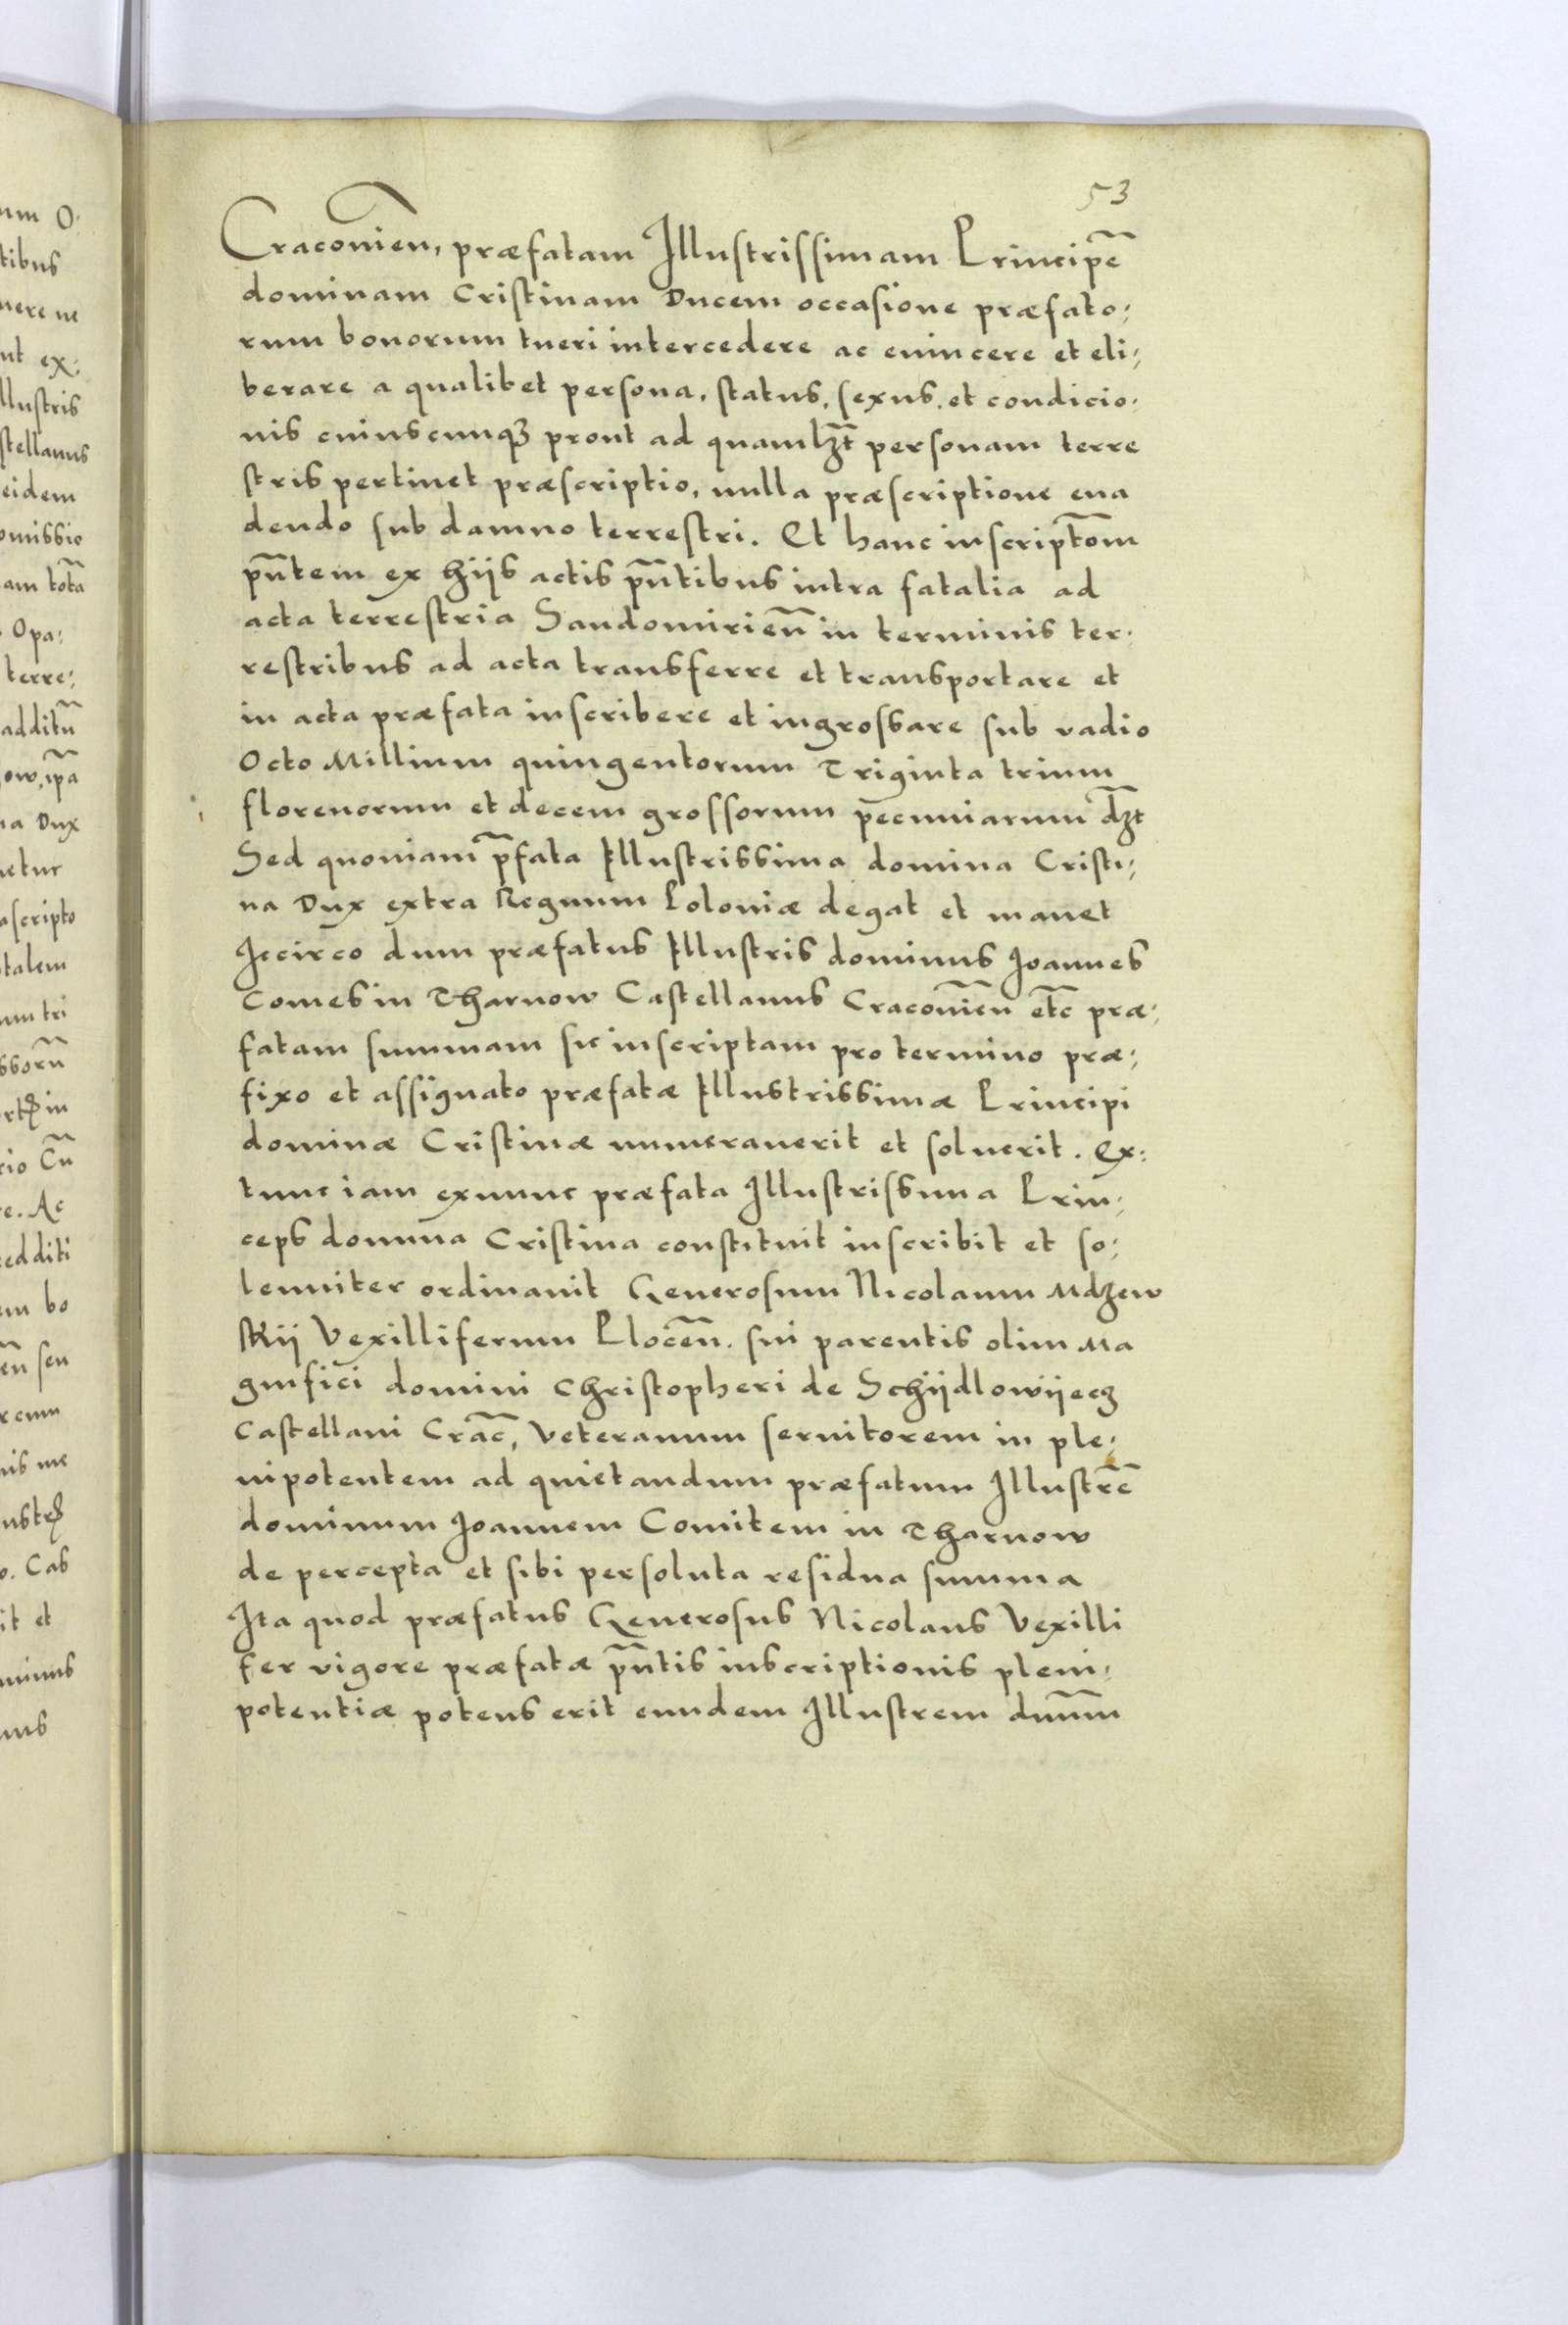 53
Craconień, præfatam Illustrissimam Principē
dominam Cristinam Ducem occasione præfato;
rum bonorum tueri intercedere ac euincere et eli;
berare a qualibet persona, status, sexus, et condicio-
nis cuiuscunqȝ prout ad quamlȝt personam terre
stris pertinet præscriptio, nulla præscriptione eua
dendo sub damno terrestri. Et hanc inscriptōm
pñtem ex hijs actis pñtibus intra fatalia ad
acta terrestria Sandomirień in terminis ter-
restribus ad acta transferre et transportare et
in acta præfata inscribere et ingrossare sub vadio
Octo Millium quingentorum Triginta trium
florenorum et decem grossorum pecuniarum dȝt
Sed quoniam p̄fata Illustrissima domina Cristi;
na Dux extra Regnum Poloniæ degat et manet
Iccirco dum præfatus Illustris dominus Joannes
Comes in Tharnow Castellanus Craconień etc̄ præ;
fatam summam sic inscriptam pro termino præ;
fixo et assignato præfatæ Illustrissimæ Principi
dominæ Cristinæ numerauerit et soluerit. Ex;
tunc iam exnunc præfata Illustrissima Prin;
ceps domina Cristina constituit inscribit et so;
lenniter ordinauit Generosum Nicolaum Mdzew
skij Vexilliferum Plocēn. sui parentis olim Ma
gnifici domini Christopheri de Schijdlowijecz
Castellani Crac̄, Veteranum seruitorem in ple;
nipotentem ad quietandum præfatum Illustrē
dominum Joannem Comitem in Tharnow
de percepta et sibi persoluta residua summa
Ita quod præfatus Generosus Nicolaus Vexilli
fer vigore præfatæ pñtis inscriptionis pleni;
potentiæ potens erit eundem Illustrem dnum̄